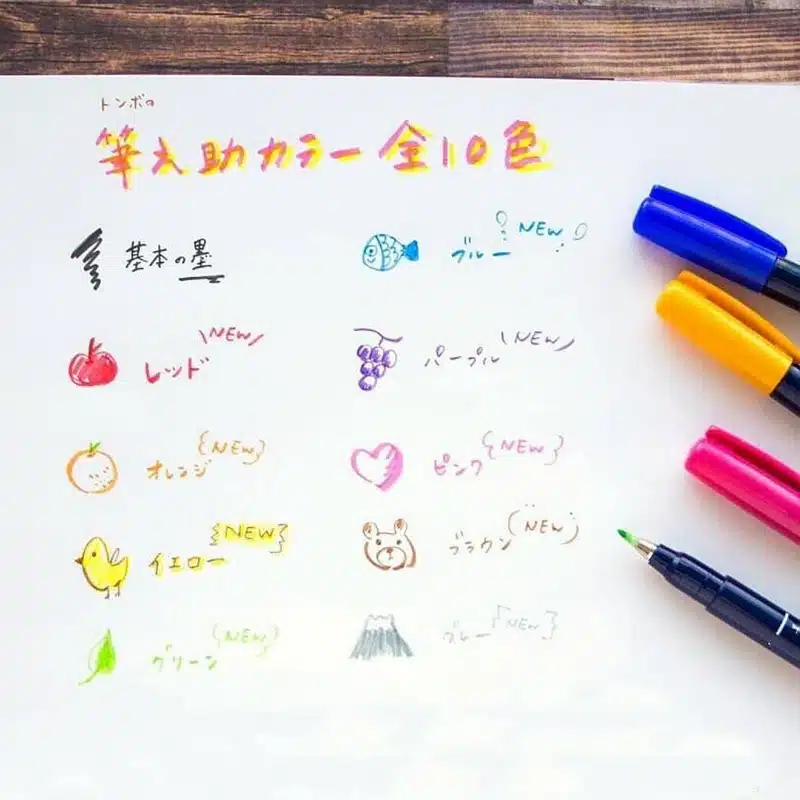 トンボの
筆之助カラー 全10色
基本の墨
レッド \NEW/
オレンジ {NEW}
イエロー {NEW}
グリーン {NEW}
ブルー NEW
パープル \NEW/
ピンク {NEW}
ブラウン (NEW)
グレー {NEW}